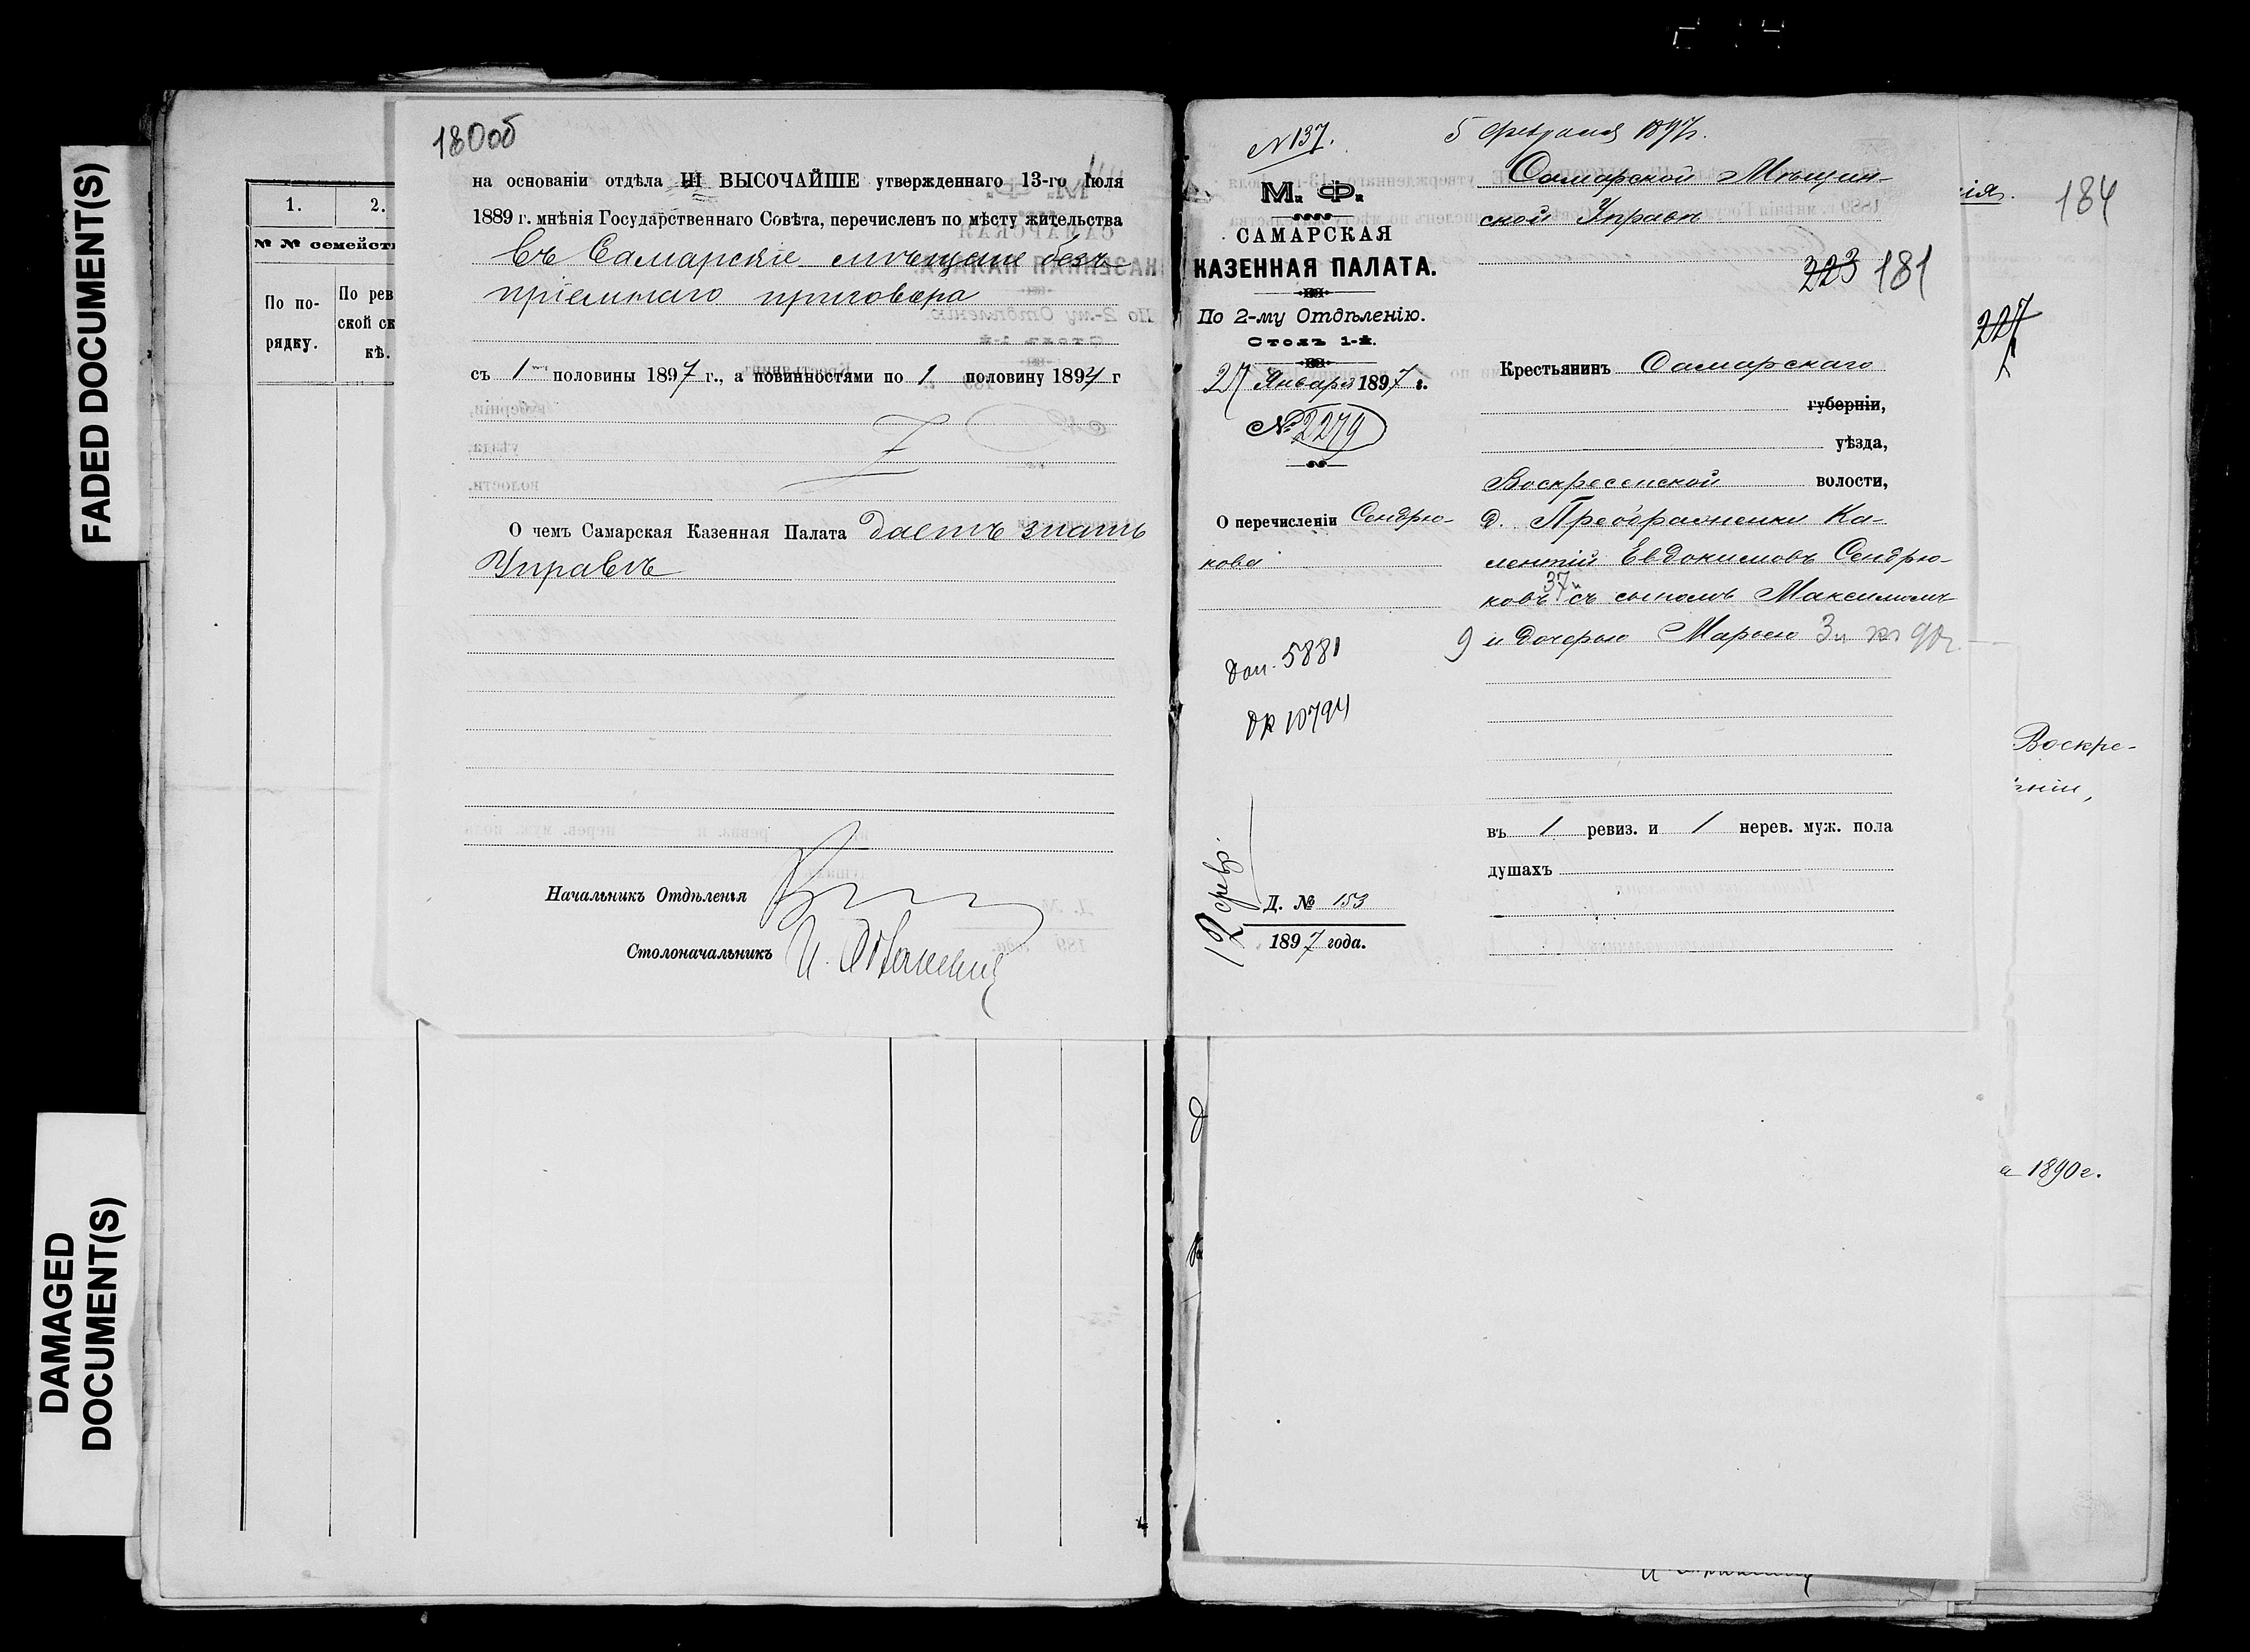 FADED DOCUMENT(S)
DAMAGED DOCUMENT(S)
180об
1.
2.
№ № семейст
По по-
рядку.
По рев
ской ск
кѣ.
на основаніи отдѣла III ВЫСОЧАЙШЕ утвержденнаго 13-го Іюля
1889 г. мнѣнія Государственнаго Совѣта, перечисленъ по мѣсту жительства
въ Самарскіе мѣщане безъ
пріемнаго приговора
съ 1 половины 1897 г., а повинностями по 1 половину 1897 г
О чемъ Самарская Казенная Палата даетъ знать
Управѣ
Начальникъ Отдѣленія
Столоначальникъ
N 137.
М. Ф.
САМАРСКАЯ
КАЗЕННАЯ ПАЛАТА.
По 2-му Отдѣленію.
Столъ 1-й.
27 Января 1897 г.
№ 2279
О перечисленіи Сендрю-
кова
доп. 5881
ДК 10794
12 февр.
Д. № 153
1897 года.
5 Февраля 1897г.
Самарской Мѣщан-
ской Управѣ
223 181
Крестьянинъ Самарскаго
губерніи,
уѣзда,
Воскресенской волости,
д. Преображенки Ка-
лентій Евдокимовъ Сендрю-
ковъ 37 съ сыномъ Максимомъ
9 и дочерью Марьею 3
въ 1 ревиз. и 1 нерев. муж. пола
душахъ
ія.
184
227
Воскре-
ніи,
а 1890 г.